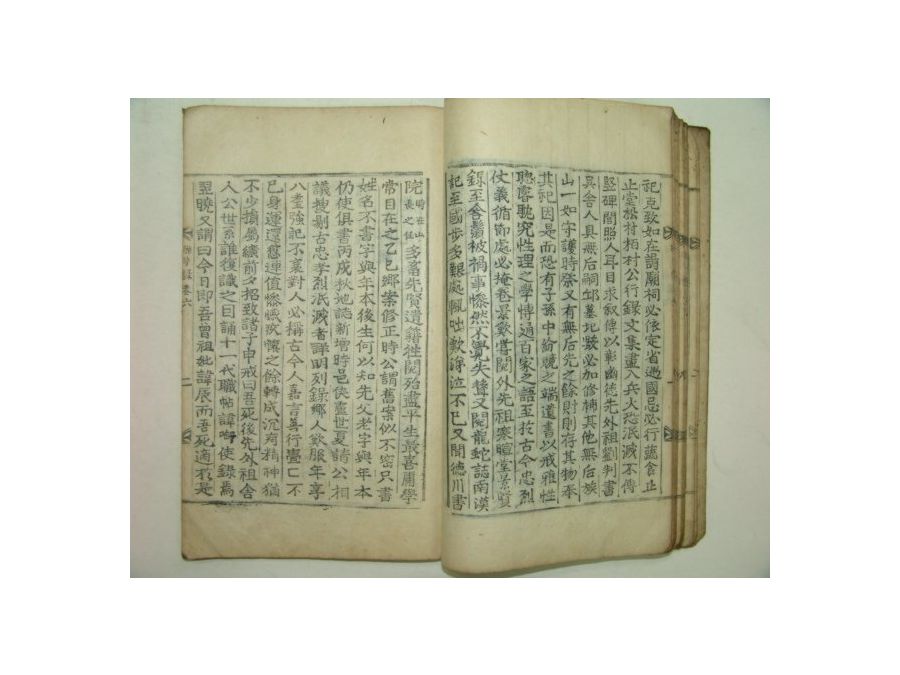 祀克致如在謁廟祠必依定省過國忌必行蔬食止
止堂松村栢村公行錄文集盡入兵火恐泯滅不傳
堅碑閣照人耳目求叙傳以彰幽德先外祖劉判書
吳舍人眞無后嗣邱墓圮毀必加修補其他無后族
山一如守護時祭又有無后先之餘財則存其物奉
其祀因是而恐有子孫中紛競之端遺書以戒雅性
聰睿耽究性理之學博通百家之語至於古今忠烈
仗義循節處必掩卷景歎嘗閱外先祖寒暄堂景賢
錄至舍鬚被禍事慘然不覺失聲又閱龍蛇誌南漢
記至國步多艱處輒咄歎涕泣不已又聞德川書
院時在山長之任多蓄先賢遺籍往閱殆盡平生最喜庸學
常目在之乙巳鄉案修正時公謂舊案似不密只書
姓名不書字與年本後生何以知先父老字與年本
仍使俱書丙戌秋地誌新增時邑倅盧世夏請公相
議搜剔古忠孝烈泯滅者詳明列錄鄉人歎服年享
八耋強記不衰對人必稱古今人嘉言善行亹亹不
已身運運舊運值慘慽戊穰之餘轉成沉痾精神猶
不少損屬纊前夕招致諸子申戒曰吾死後先外祖舍
人公世系誰復識之因誦十一代職帖諱啣使錄焉
翌曉又謂曰今日卽吾曾祖妣諱辰而吾死適於是
卷六
二